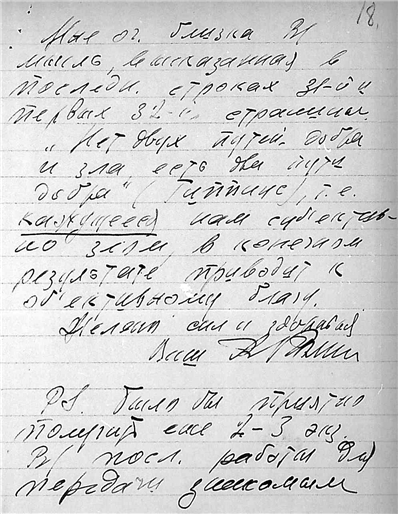 18.
Мне оч. близка В/
мысль, высказанная в
последн. строках 31-й и
первых 32-й страницы.
„Нет двух путей добра
и зла, есть два пути
добра" (Гиппиус), т.е.
кажущееся нам субъектив-
но злом, в конечном
результате приводит к
объективному благу.
Желаю сил и здоровья
Ваш
PS. было бы приятно
получить еще 2-3 экз.
В/ посл. работы для
передачи знакомым